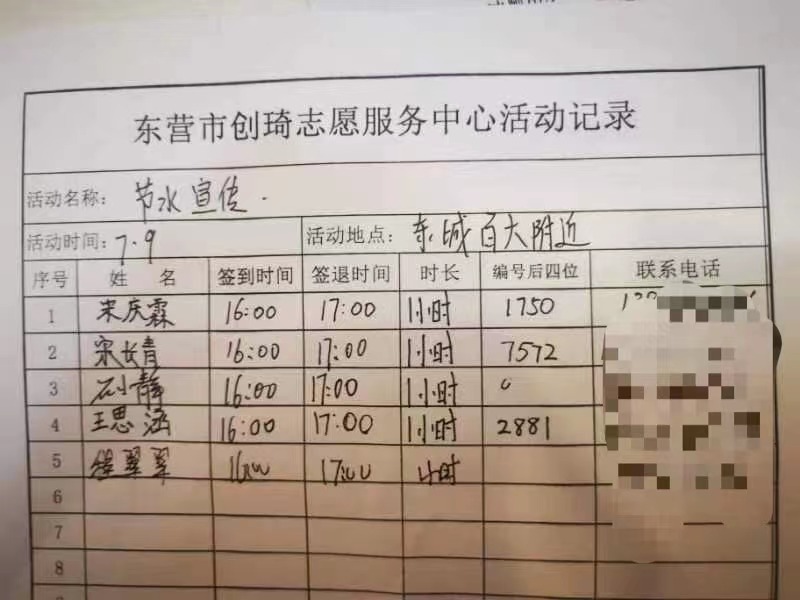 东营市创琦志愿服务中心活动记录
活动名称: 节水宣传.
活动时间: 7.9 活动地点: 东城百大附近
序号 姓名 签到时间 签退时间 时长 编号后四位 联系电话
1 宋庆霖 16:00 17:00 1小时 1750
2 宋长青 16:00 17:00 1小时 7572
3 石小静 16:00 17:00 1小时
4 王思涵 16:00 17:00 1小时 2881
5 翠翠 16:00 17:00 1小时
6
7
8